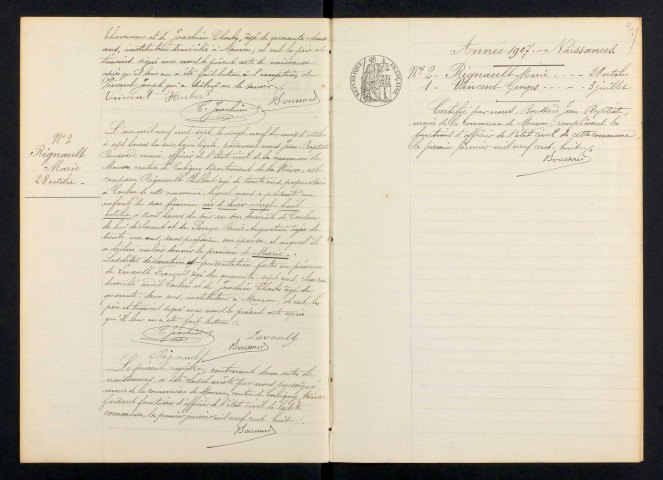 et de Joachim Charles, âgé de quarante-deux
ans, instituteur domicilié à Mouron; et ont les père et
témoins signé avec nous le présent acte de naissance
après qu'il leur en a été fait lecture à l'exception de
Vincent Joseph qui a déclaré ne savoir.
Vincent Hubert
C. Joachim Boussard
N° 2
Rignault
Marie
28 octobre
L'an mil neuf cent sept, le vingt neuf du mois d'octobre
à sept heures du soir, par devant nous Jean Baptiste
Boussard, maire, officier de l'état civil de la commune de
Mouron canton de Corbigny département de la Nièvre, est
comparu Rignault âgé de trente ans, propriétaire
à Coulon de cette commune, lequel nous a présenté un
enfant du sexe féminin né d'hier vingt huit
octobre à trois heures du soir en son domicile de Coulon
de lui déclarant et de Augustine âgée de
trente un ans, sans profession, son épouse, et auquel il
a déclaré vouloir donner le prénom de Marie.
Lesdites déclaration et présentation faites en présence
de Lavault François âgé de quarante sept ans,
domicilié audit Coulon et de Joachim Charles âgé de
quarante deux ans, instituteur à Mouron, et ont les
père et témoins signé avec nous le présent acte après
qu'il leur en a été fait lecture.
C. Joachim Lavault
Rignault Boussard
Le présent registre, contenant deux actes de
naissances, a été clos et arrêté par nous soussigné
maire de la commune de Mouron, canton de Corbigny, Nièvre
faisant fonctions d'officier de l'état civil de ladite
commune, le premier janvier mil neuf cent huit.
Boussard
Année 1907. - Naissances
N° 2 - Rignault Marie - - - 28 octobre
1 - Vincent Georges - - - 3 juillet
Certifié par nous, Boussard Jean Baptiste
maire de la commune de Mouron, remplissant les
fonctions d'officier de l'état civil de cette commune
le premier janvier mil neuf cent huit.
Boussard